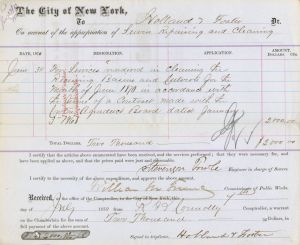 The City of New York,
To Holland & Foster Dr.
On account of the appropriation of Sewers repairing and Cleaning
DATE, 1870 DESIGNATION. APPLICATION. AMOUNT DOLLARS CTS.
June 30 For Services rendered in Cleaning the
Receiving Basins and Culverts for the
Month of June 1870, in accordance with
the terms of a Contract made with the
Croton Aqueduct Board dated
2000.00
TOTAL DOLLARS. Two Thousand $ 2,000.00
I certify that the articles above enumerated have been received, and the services performed; that they were necessary for the use, and have been or will be
applied as above; and that the prices paid were just and reasonable.
Stevenson Towle Engineer in charge of Sewers
I certify to the correctness of the above account,
William M. Tweed Commissioner of Public Works.
Received, in the office of the Comptroller, of the City of New York, this
day of July 1870 from R. B. Connolly Comptroller, a Warrant
on the Chamberlain for the sum of Two Thousand Dollars, in
full payment of the above account.
$ 2,000.00 Signed in triplicate, Holland & Foster